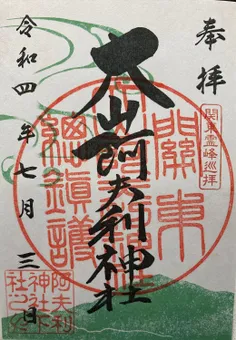 奉拝
関東霊峰巡拝
關東
大山阿夫利神社
總鎮護
令和四年七月三日
阿夫利
神社下
社之印